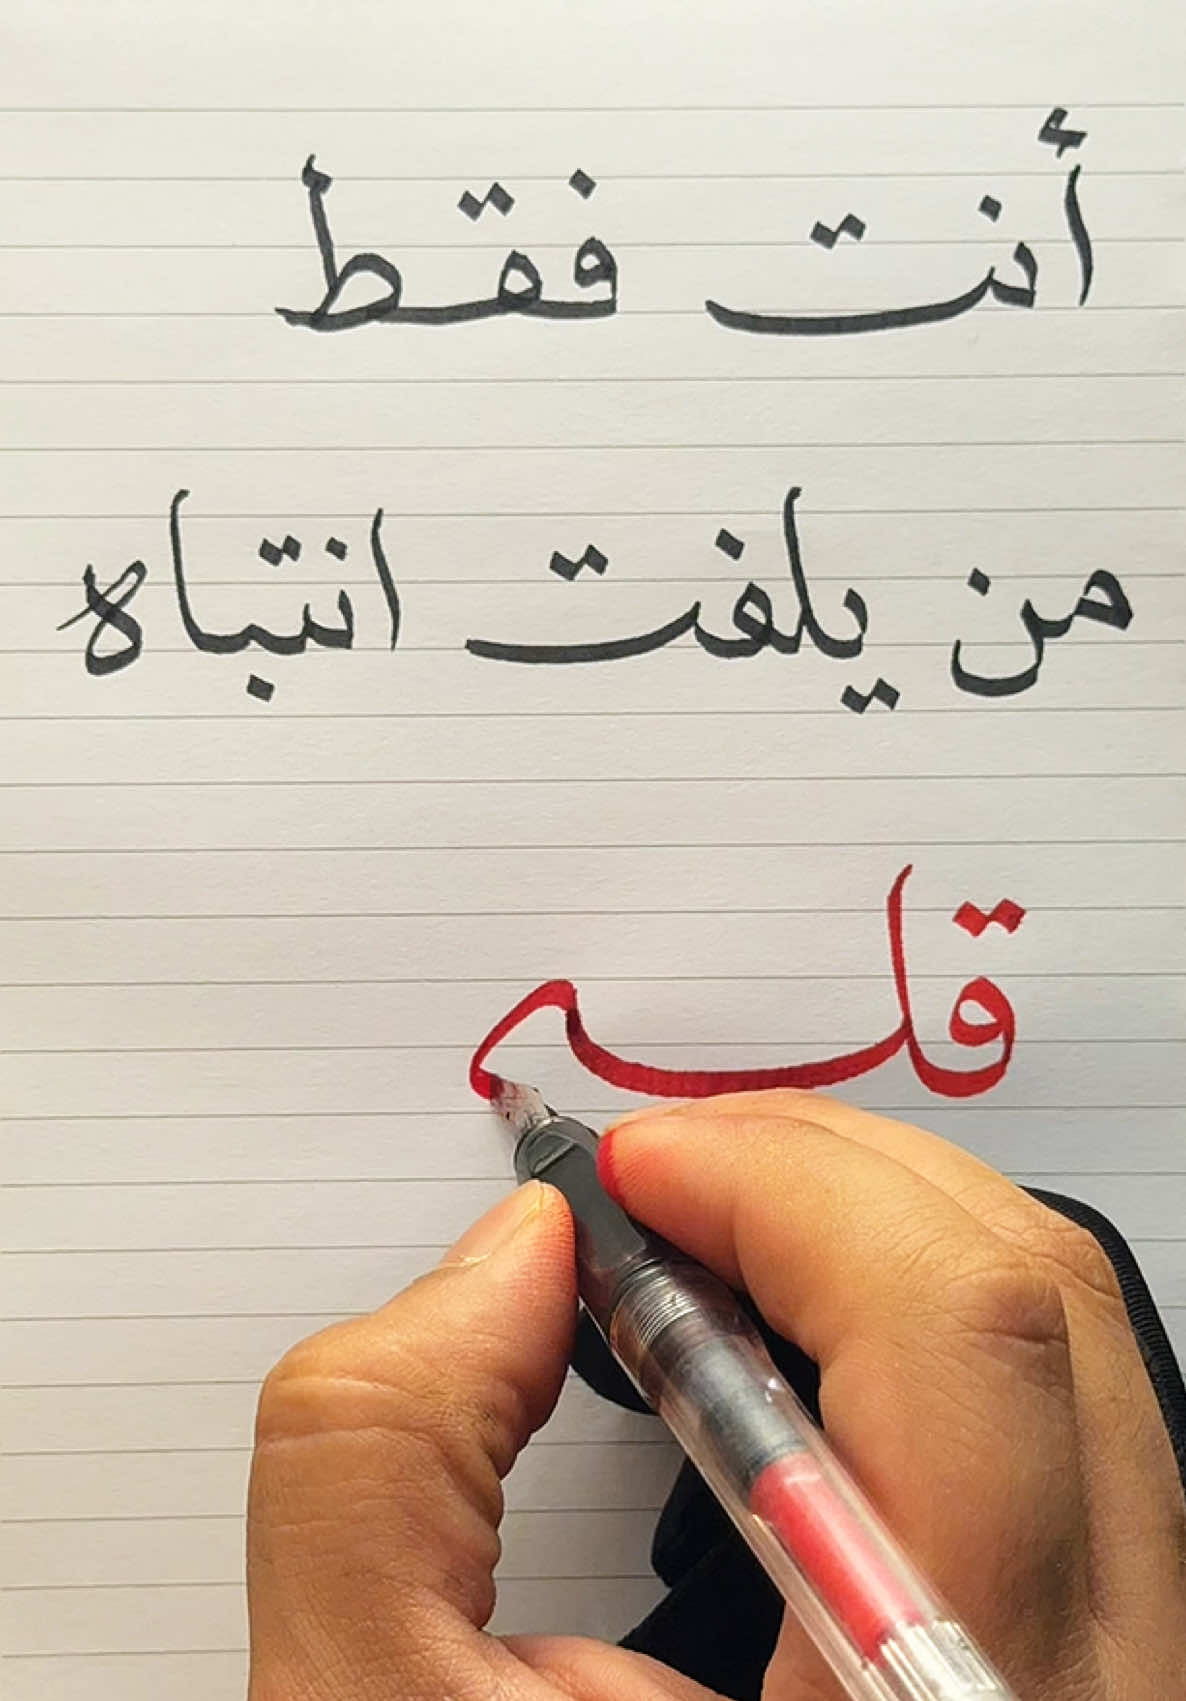 أنت فقط
من يلفت انتباه